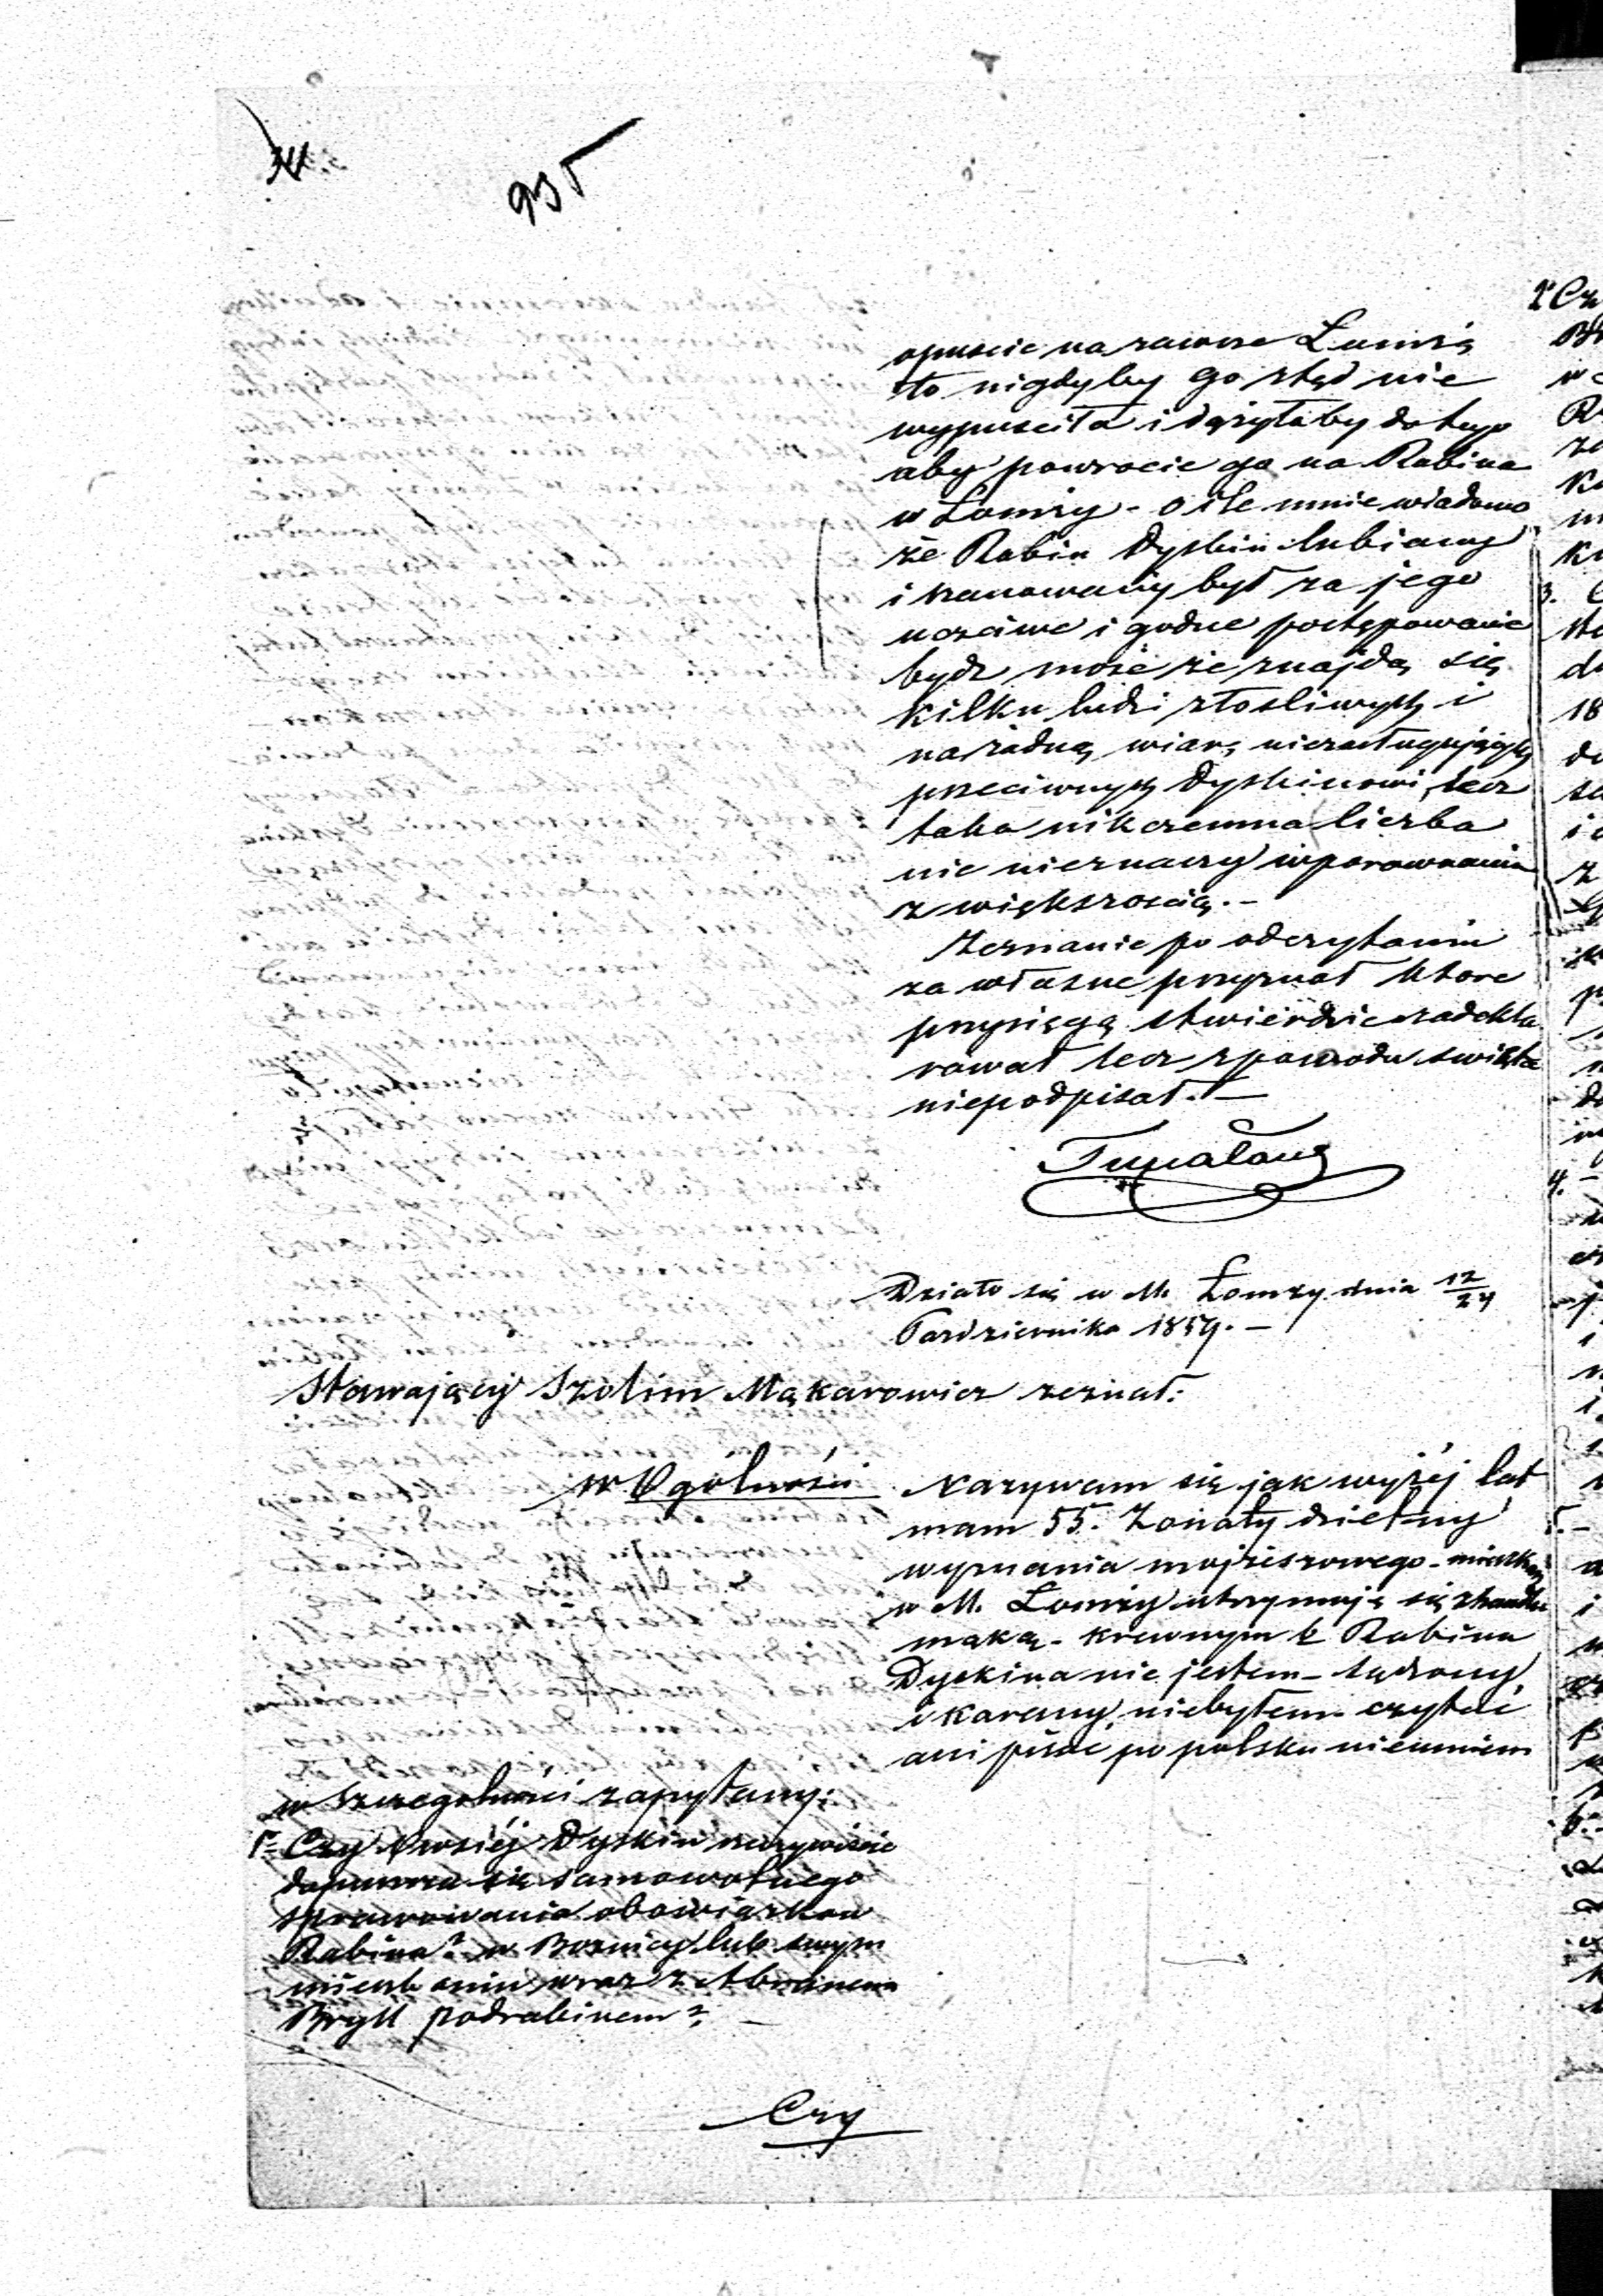 935
opuscic na zawsze Łomżą
to nigdyby go ztąd nie
wypusciła i dążyłaby do tego
aby powrocic go na Rabina
w Łomży - o ile mnie wiadomo
że Rabin Dyskin lubiany
i szanowany był za jego
uczciwe i godne postępowanie
bydz może że znajdą się
kilku ludzi złosliwych i
na żadną wiarę niezasługujących
przeciwnych Dyskinowi, lecz
taka nikczemna liczba
nic nieznaczy w porownaniu
z większoscią. -
Zeznanie po odczytaniu
za własne przyznał ktore
przysięgą stwierdzic zadekla
rował lecz zpowodu swięta
niepodpisał. -
Działo się w M. Łomzy dnia 12/24
Pazdziernika 1859. -
Stawający Szolim Mąkarowicz zeznał:
w Ogólności
Nazywam się jak wyżéj lat
mam 55. Żonaty dzietny
wyznania mojżeszowego - mieszkam
w M. Łomży utrzymuję się z handlu
mąką - krewnym z Rabina
Dyskina nie jestem - sądzony
i karany niebyłem - czytać
ani pisać po polsku nieumiem
w Szczegolności zapytany:
1- Czy Owsiéj Dyskin rzeczywiscie
dopuszcza się samowolnego
sprawowania obowiązkow
Rabina? w Boznicy lub swym
mieszkaniu wraz z Abramem
Bryll podrabinem? -
Czy